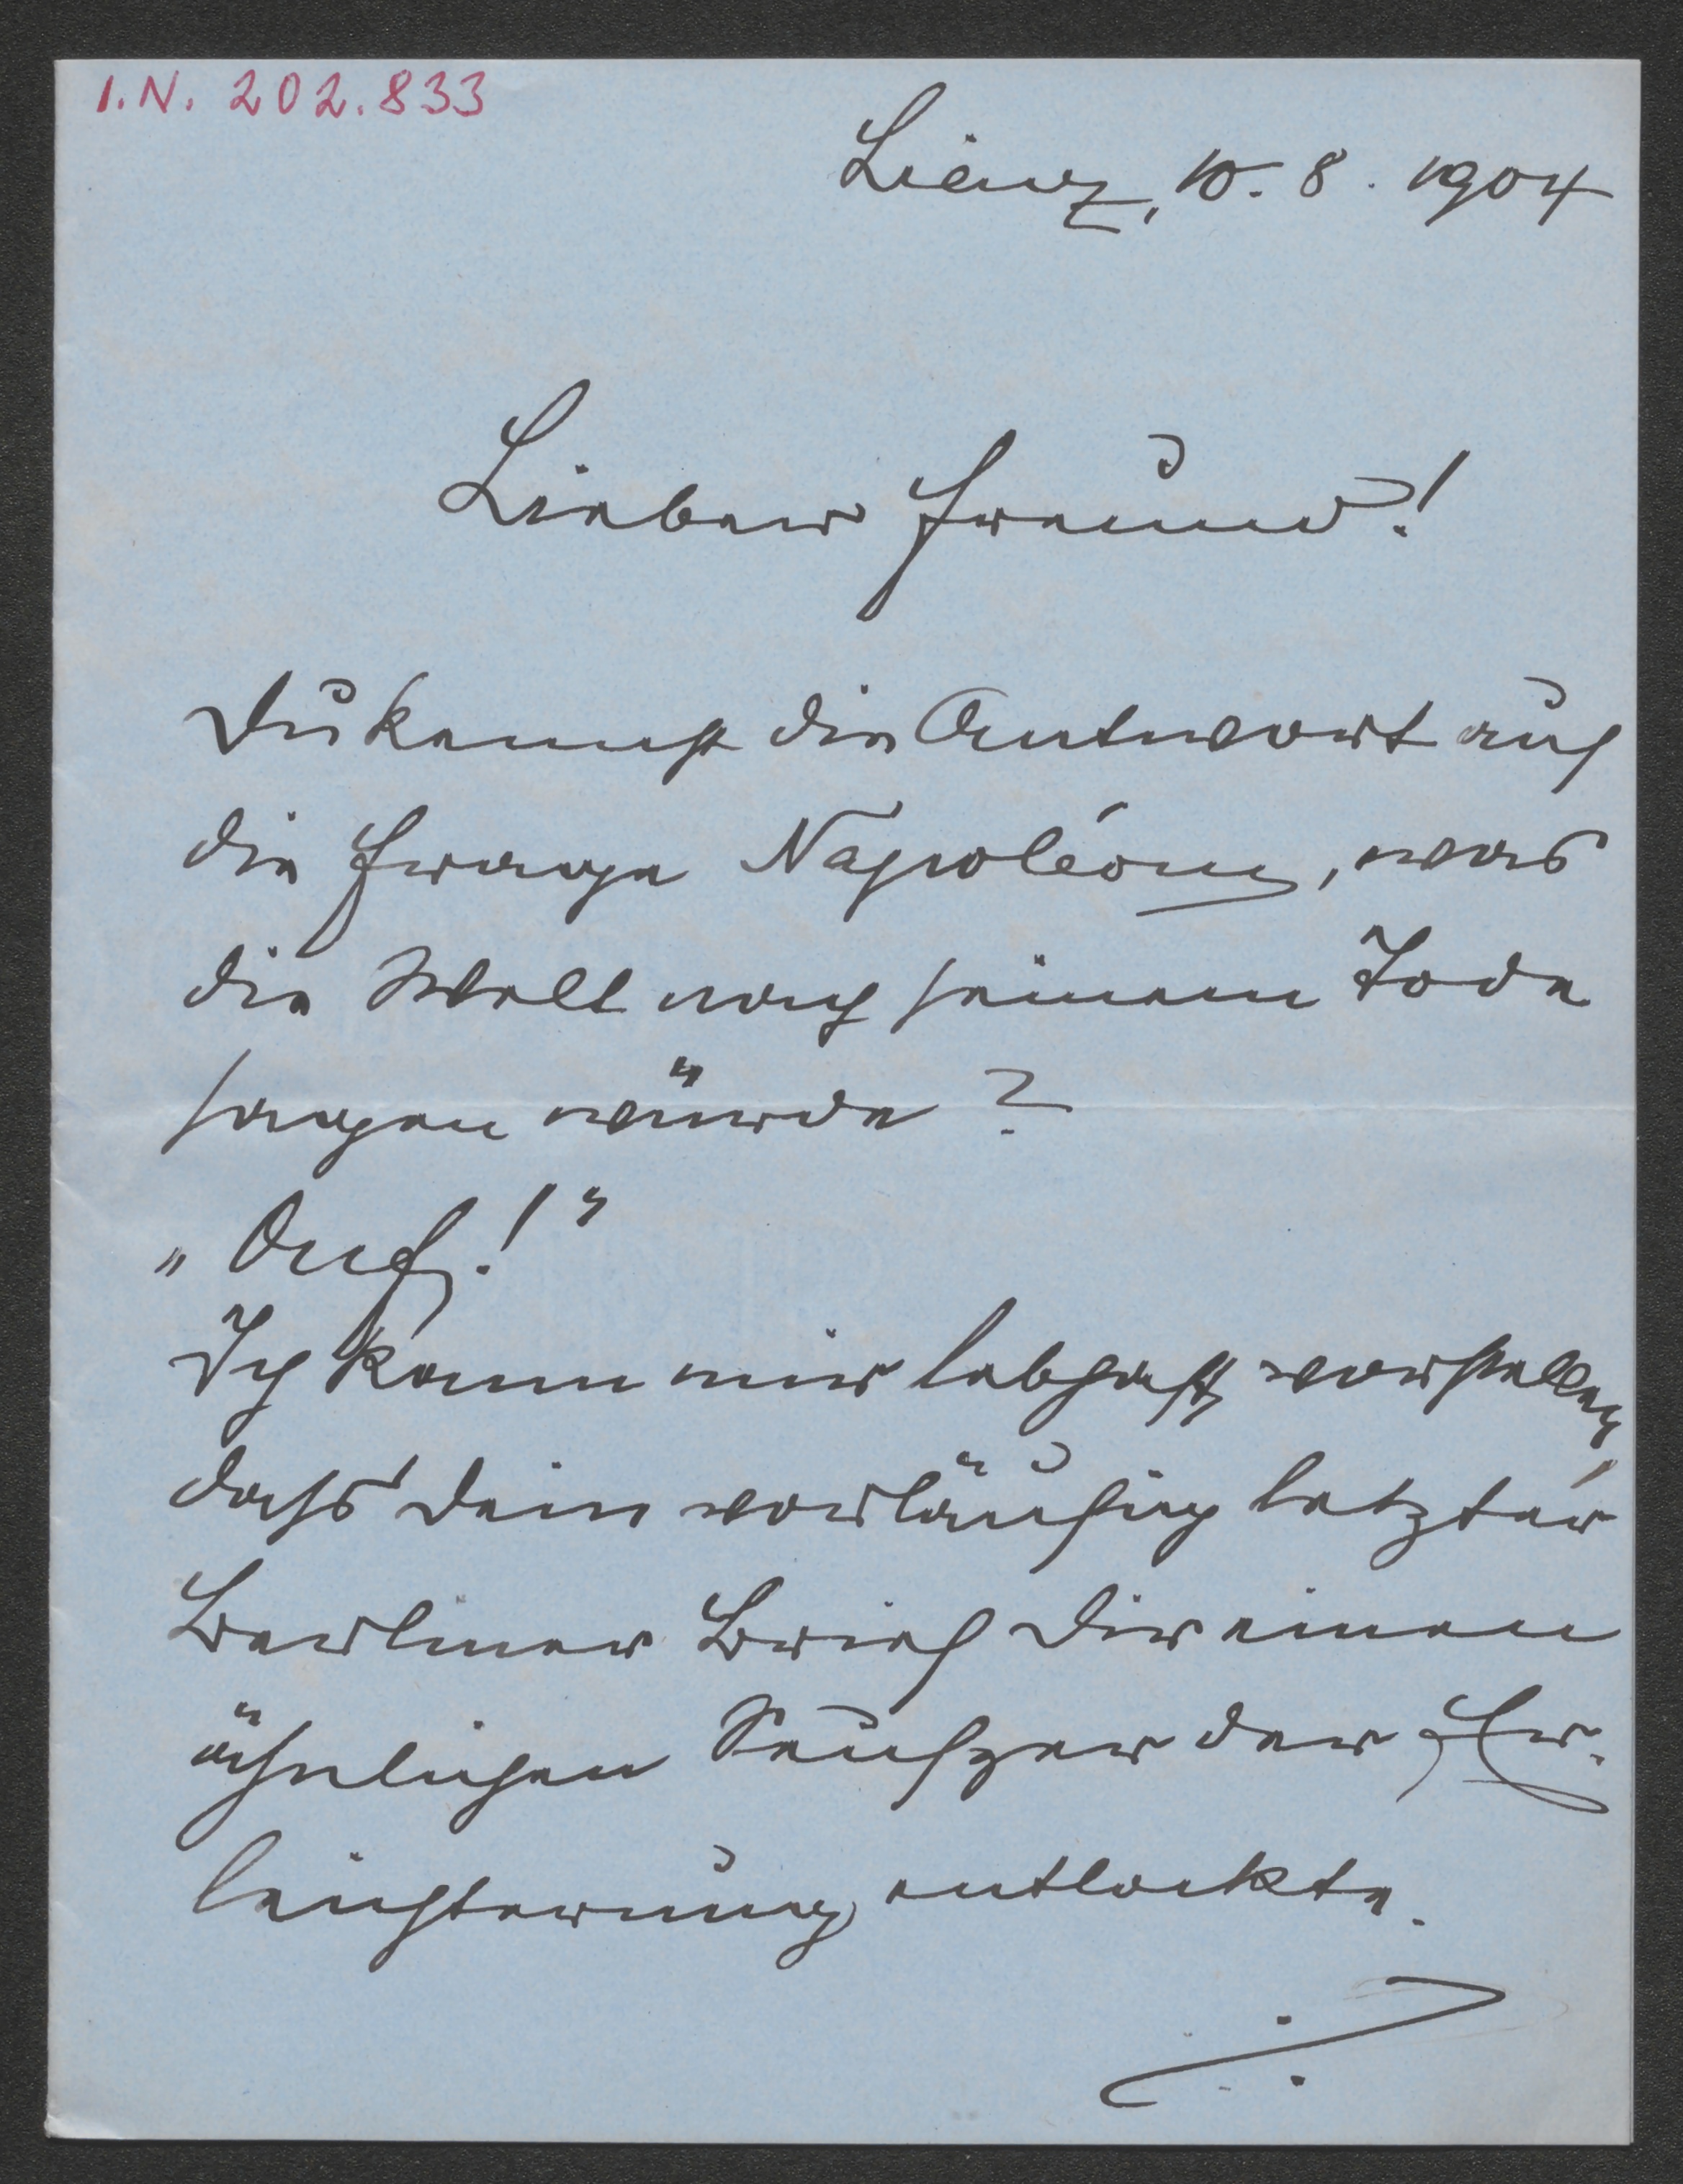 I.N. 202.833
Lienz, 10. 8. 1904
Lieber Freund!
Du kennst die Antwort auf
die Frage Napoléons, was
die Welt nach seinem Tode
sagen würde?
„Ouf!“
Ich kann mir lebhaft vorstellen,
dass Dein vorläufig letzter
Berliner Brief Dir einen
ähnlichen Seufzer der Er-
leichterung entlockte.